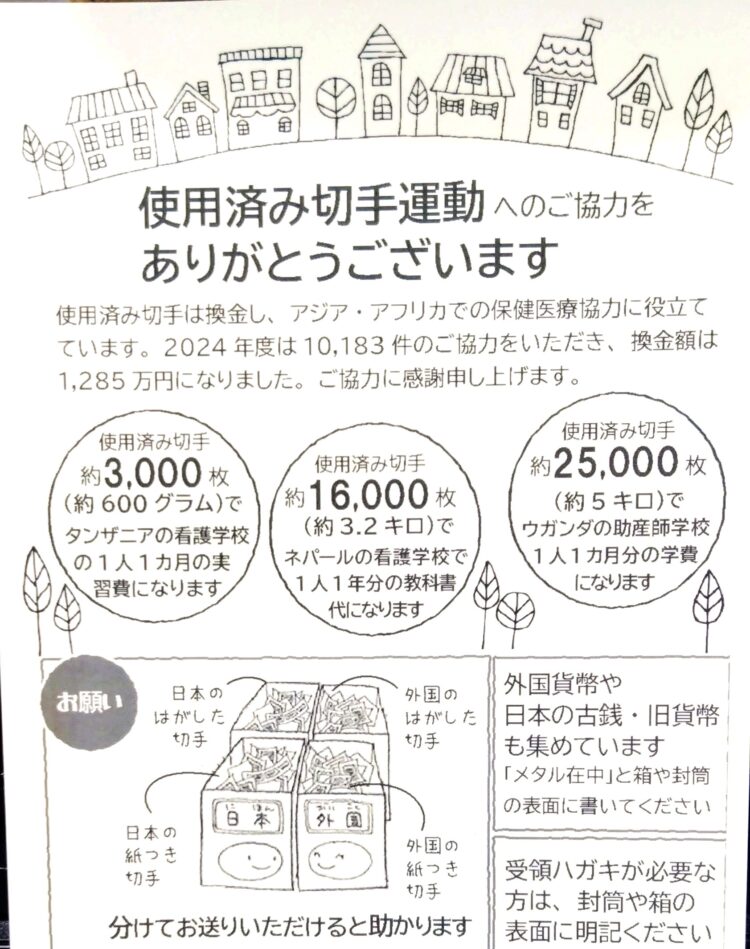 使用済み切手運動へのご協力を
ありがとうございます
使用済み切手は換金し、アジア・アフリカでの保健医療協力に役立て
ています。2024年度は10,183件のご協力をいただき、換金額は
1,285万円になりました。ご協力に感謝申し上げます。
使用済み切手
約3,000枚
(約600グラム)で
タンザニアの看護学校
の1人1カ月の実
習費になります
使用済み切手
約16,000枚
(約3.2キロ)で
ネパールの看護学校で
1人1年分の教科書
代になります
使用済み切手
約25,000枚
(約5キロ)で
ウガンダの助産師学校
1人1カ月分の学費
になります
お願い
日本の
はがした
切手
外国の
はがした
切手
にほん
日本
がいこく
外国
日本の
紙つき
切手
外国の
紙つき
切手
分けてお送りいただけると助かります
外国貨幣や
日本の古銭・旧貨幣
も集めています
「メタル在中」と箱や封筒
の表面に書いてください
受領ハガキが必要な
方は、封筒や箱の
表面に明記ください